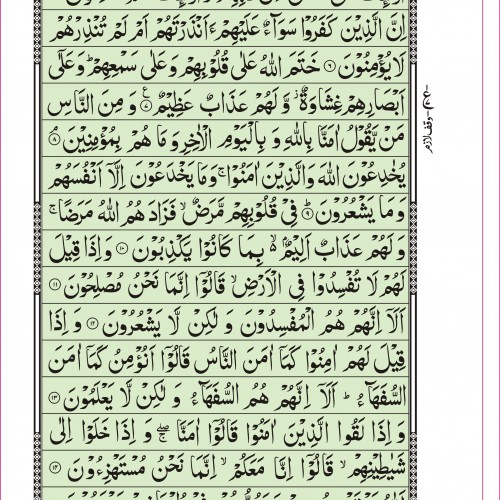 اِنَّ الَّذِيْنَ كَفَرُوْا سَوَآءٌ عَلَيْهِمْ ءَاَنْذَرْتَهُمْ اَمْ لَمْ تُنْذِرْهُمْ
لَا يُؤْمِنُوْنَ ۝۶ خَتَمَ اللّٰهُ عَلٰى قُلُوْبِهِمْ وَ عَلٰى سَمْعِهِمْ ؕ وَ عَلٰۤى
اَبْصَارِهِمْ غِشَاوَةٌ ؗ وَّ لَهُمْ عَذَابٌ عَظِيْمٌ ۝۷ وَ مِنَ النَّاسِ
مَنْ يَّقُوْلُ اٰمَنَّا بِاللّٰهِ وَ بِالْيَوْمِ الْاٰخِرِ وَ مَا هُمْ بِمُؤْمِنِيْنَ ۘ ۝۸
يُخٰدِعُوْنَ اللّٰهَ وَ الَّذِيْنَ اٰمَنُوْا ۚ وَ مَا يَخْدَعُوْنَ اِلَّاۤ اَنْفُسَهُمْ
وَ مَا يَشْعُرُوْنَ ؕ ۝۹ فِيْ قُلُوْبِهِمْ مَّرَضٌ ۙ فَزَادَهُمُ اللّٰهُ مَرَضًا ۚ
وَ لَهُمْ عَذَابٌ اَلِيْمٌۢ ۙ۬ بِمَا كَانُوْا يَكْذِبُوْنَ ۝۱۰ وَ اِذَا قِيْلَ
لَهُمْ لَا تُفْسِدُوْا فِي الْاَرْضِ ۙ قَالُوْۤا اِنَّمَا نَحْنُ مُصْلِحُوْنَ ۝۱۱
اَلَاۤ اِنَّهُمْ هُمُ الْمُفْسِدُوْنَ وَ لٰكِنْ لَّا يَشْعُرُوْنَ ۝۱۲ وَ اِذَا
قِيْلَ لَهُمْ اٰمِنُوْا كَمَاۤ اٰمَنَ النَّاسُ قَالُوْۤا اَنُؤْمِنُ كَمَاۤ اٰمَنَ
السُّفَهَآءُ ؕ اَلَاۤ اِنَّهُمْ هُمُ السُّفَهَآءُ وَ لٰكِنْ لَّا يَعْلَمُوْنَ ۝۱۳
وَ اِذَا لَقُوا الَّذِيْنَ اٰمَنُوْا قَالُوْۤا اٰمَنَّا ۖۚ وَ اِذَا خَلَوْا اِلٰى
شَيٰطِيْنِهِمْ ۙ قَالُوْۤا اِنَّا مَعَكُمْ ۙ اِنَّمَا نَحْنُ مُسْتَهْزِءُوْنَ ۝۱۴
وقف لازم